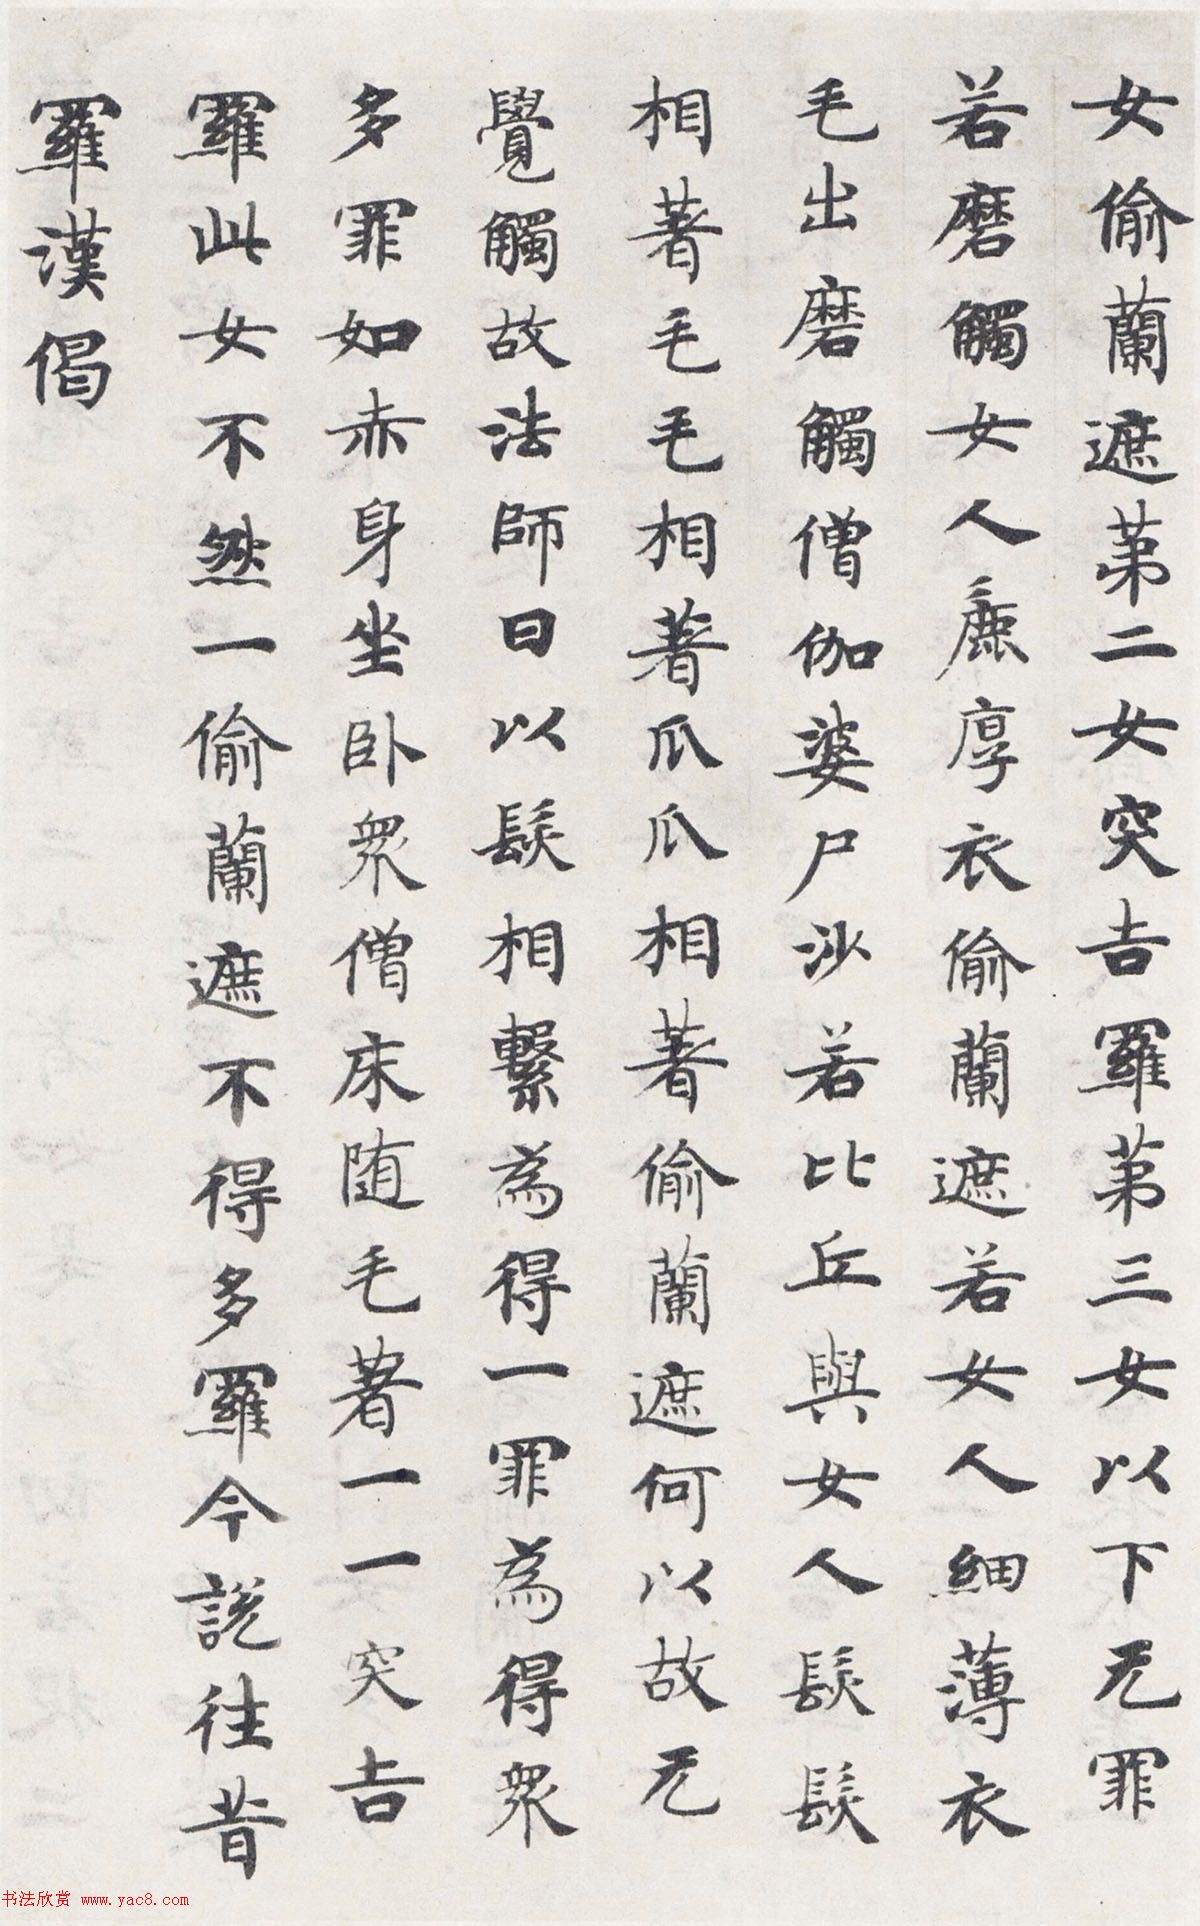 女偷蘭遮第二女突吉羅第三女以下无罪
若磨觸女人麁厚衣偷蘭遮若女人細薄衣
毛出磨觸僧伽婆尸沙若比丘與女人髮髮
相著毛毛相著爪爪相著偷蘭遮何以故无
覺觸故法師曰以髮相繫為得一罪為得眾
多罪如赤身坐卧眾僧床随毛著一一突吉
羅此女不然一偷蘭遮不得多羅今說往昔
羅漢偈
书法欣赏 www.yac8.com